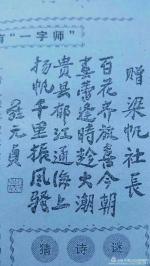 有“一字师”
赠梁帆社长
百花齐放喜今朝
蓓蕾逢时趁大潮
贵县郁江通海上
扬帆千里振风骚
庄元贞
猜诗谜